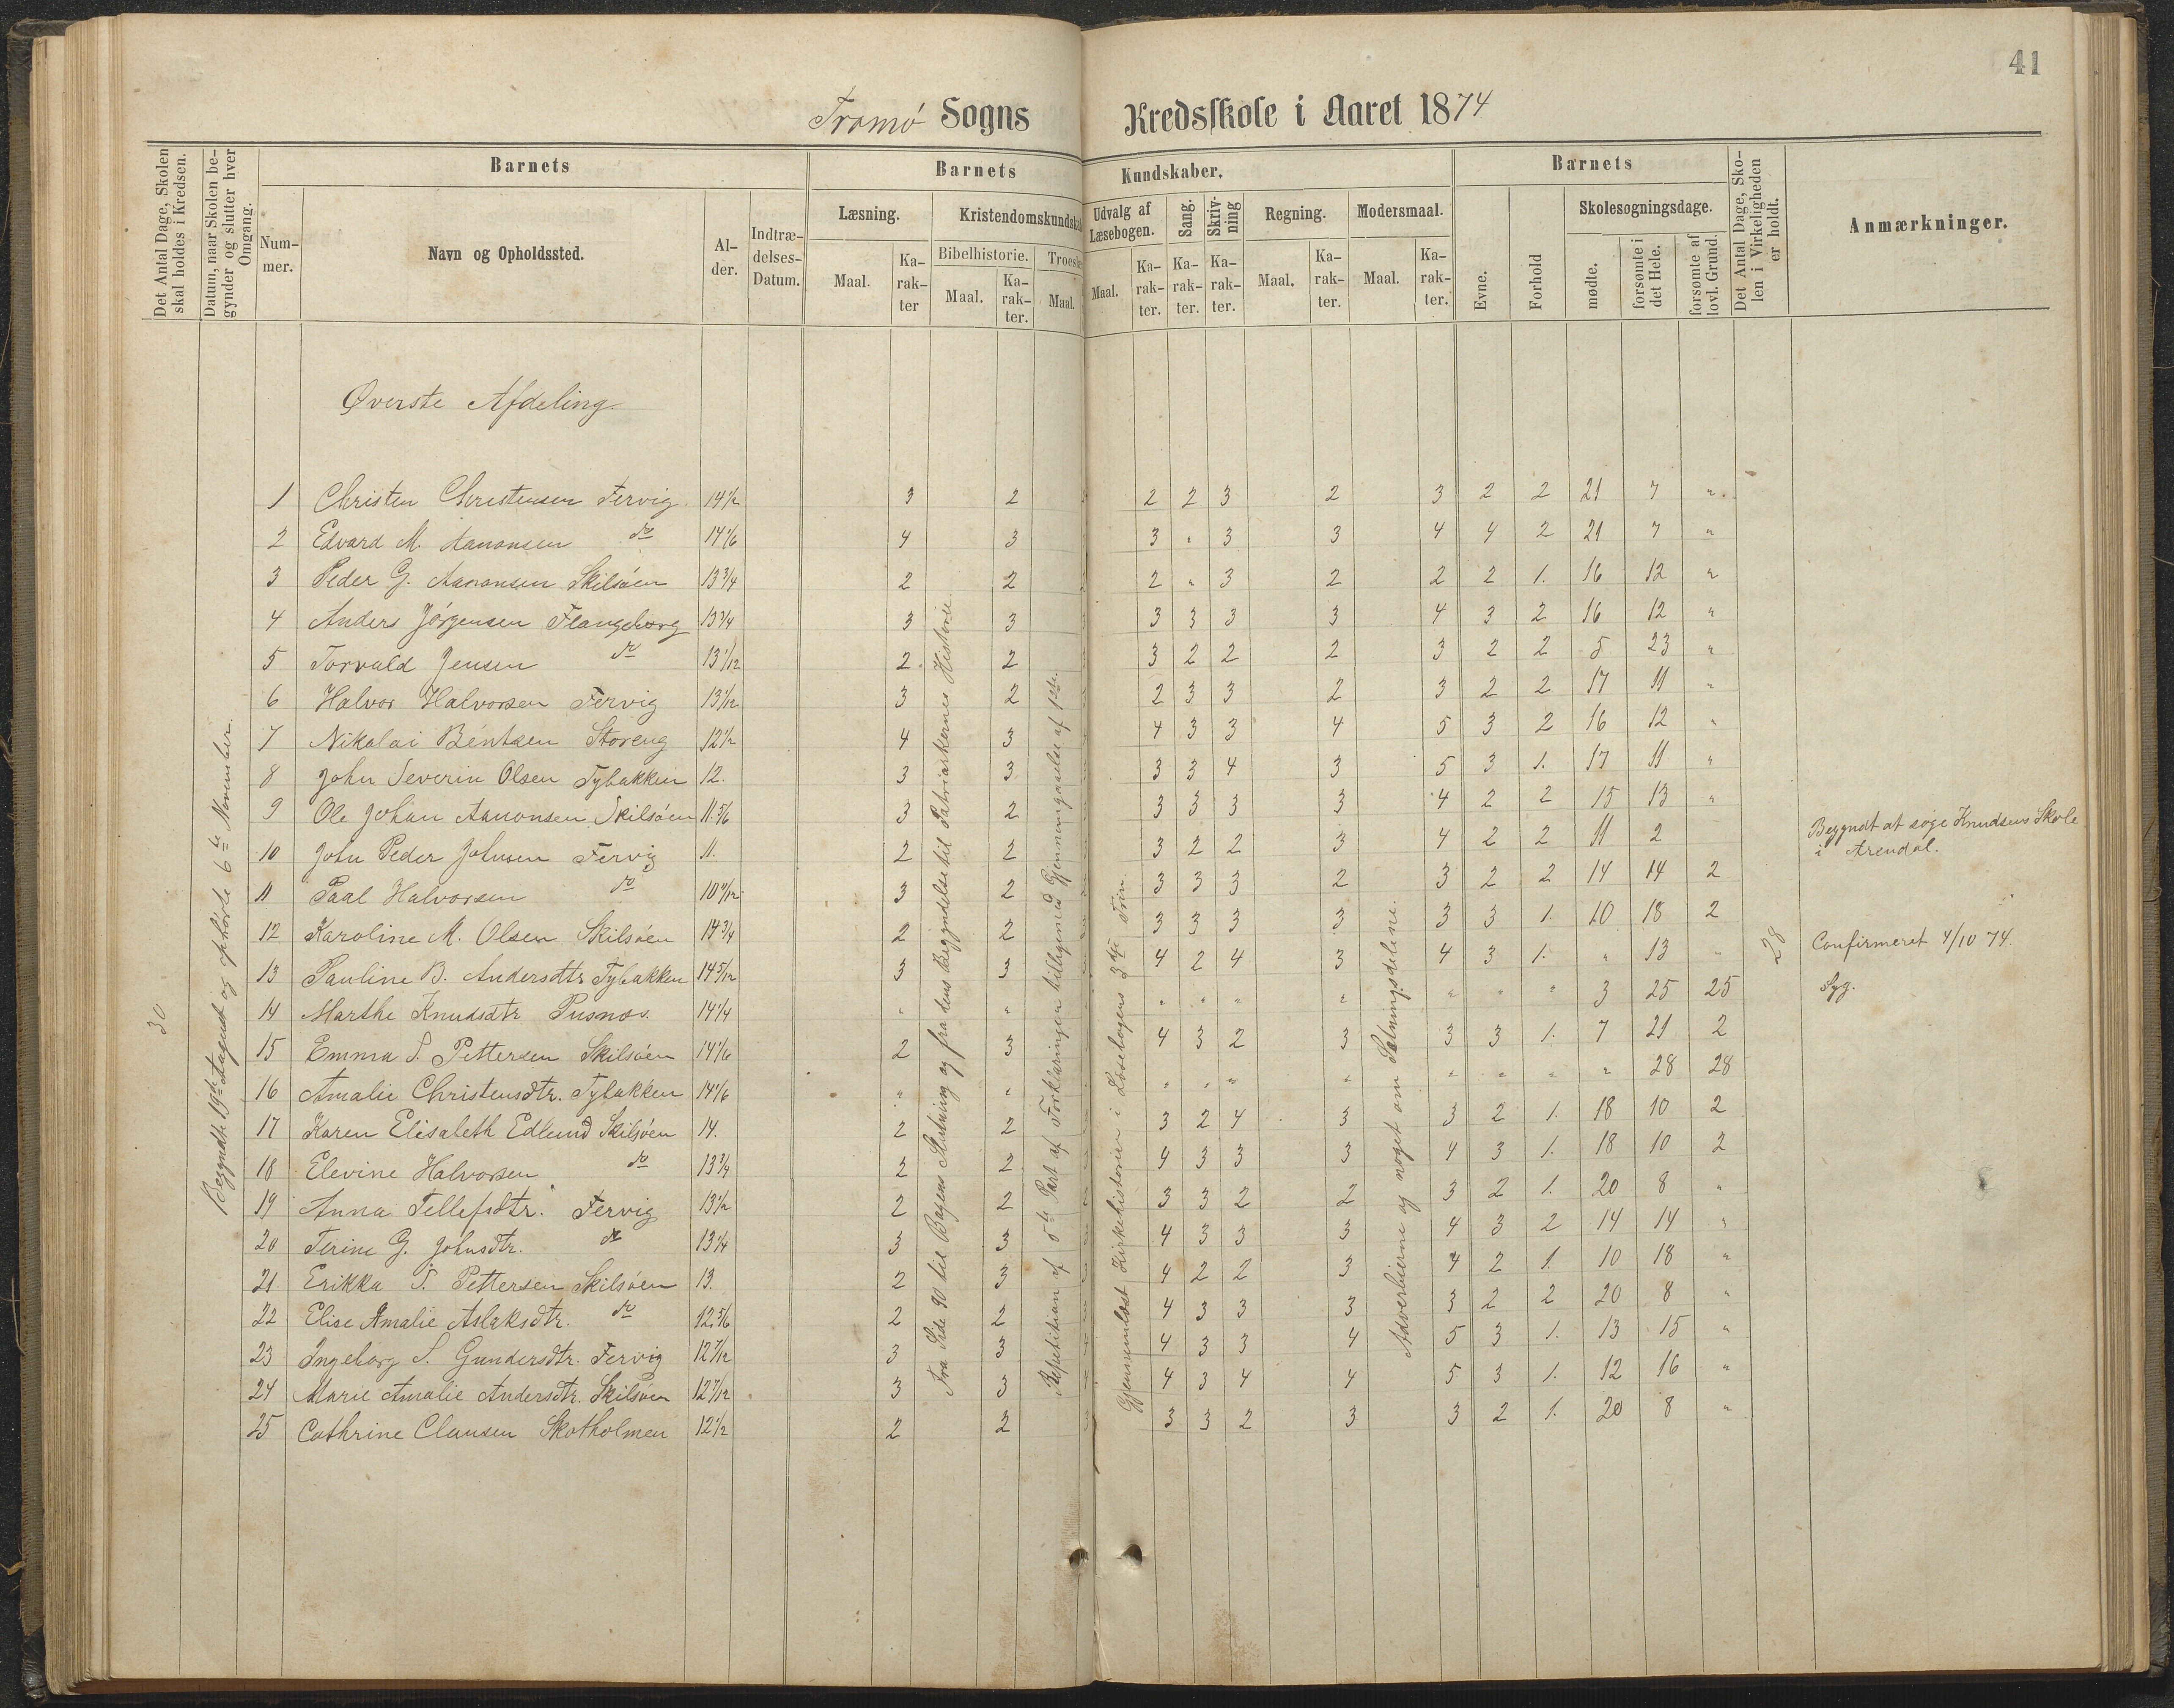 41
Tromø Sogns Kredsskole i Aaret 1874
Det Antal Dage, Skolen skal holdes i Kredsen.
Datum, naar Skolen be-gynder og slutter hver Omgang.
Barnets
Num-mer.
Navn og Opholdssted.
Al-der.
Indtræ-delses-Datum.
Barnets Kundskaber.
Læsning.
Maal.
Ka-rak-ter
Kristendomskundska
Bibelhistorie.
Maal.
Ka-rak-ter.
Troesl
Maal.
Udvalg af Læsebogen.
Maal.
Ka-rak-ter.
Sang.
Ka-rak-ter.
Skriv-ning
Ka-rak-ter.
Regning.
Maal.
Ka-rak-ter.
Modersmaal.
Maal.
Ka-rak-ter.
Barnets
Evne.
Forhold
Skolesøgningsdage.
mødte.
forsømte i det Hele.
forsømte af lovl. Grund.
Det Antal Dage, Sko-len i Virkeligheden er holdt.
Anmærkninger.
Øverste Afdeling
30
Begyndte 19de August og ophørte 6te November.
1 Christen Christensen Fervig. 14 1/2 3 2 2 2 3 2 3 2 2 21 7 "
2 Edvard M. Aanonsen do 14 1/6 4 3 3 " 3 3 4 4 2 21 7 "
3 Peder G. Aanonsen Skilsøen 13 3/4 2 2 2 " 3 2 2 2 1. 16 12 "
4 Anders Jørgensen Flangeborg 13 1/4 3 3 3 3 3 3 4 3 2 16 12 "
5 Torvald Jensen do 13 1/12 2 2 3 2 2 2 3 2 2 5 23 "
6 Halvor Halvorsen Fervig 13 1/12 3 2 2 3 3 2 3 2 2 17 11 "
7 Nikolai Bentsen Storeng 12 1/2 4 3 4 3 3 4 5 3 2 16 12 "
8 John Severin Olsen Tybakken 12. 3 3 3 3 4 3 5 3 1. 17 11 "
9 Ole Johan Aanonsen Skilsøen 11 5/6 3 2 3 3 3 3 4 2 2 15 13 "
10 John Peder Johnsen Fervig 11. 2 2 3 2 2 3 4 2 2 11 2 Begyndt at søge Knudsens Skole
i Arendal.
11 Paal Halvorsen do 10 11/12 3 2 3 3 3 2 3 2 2 14 14 2
12 Karoline M. Olsen Skilsøen 14 3/4 2 2 3 3 3 3 3 3 1. 10 18 2
13 Pauline B. Andersdtr Tybakken 14 5/12 3 3 4 2 4 3 4 3 1. " 13 " Confirmeret 4/10 74.
14 Marthe Knudsdtr Pusnes. 14 1/4 " " " " " " " " " 3 25 25 Syg.
15 Emma S. Pettersen Skilsøen 14 1/6 2 3 4 3 2 3 3 3 1. 7 21 2
16 Amalie Christensdtr. Tybakken 14 1/6 " " " " " " " " " " 28 28
17 Karen Elisabeth Edlund Skilsøen 14. 2 2 3 2 4 3 3 2 1. 18 10 2
18 Elevine Halvorsen do 13 3/4 2 2 4 3 3 3 4 3 1. 18 10 2
19 Anna Tellefsdtr. Fervig 13 1/2 2 2 3 3 2 2 3 2 1. 20 8 "
20 Terine G. Johnsdtr. do 13 1/4 3 3 4 3 3 3 4 3 2 14 14 "
21 Erikka S. Pettersen Skilsøen 13. 2 3 4 2 2 3 4 2 1. 10 18 "
22 Elise Amalie Aslaksdtr. do 12 5/6 2 2 4 3 3 3 3 2 2 20 8 "
23 Ingeborg S. Gundersdtr. Fervig 12 7/12 3 3 4 3 3 4 5 3 1. 13 15 "
24 Marie Amalie Andersdtr. Skilsøen 12 7/12 3 3 4 3 4 4 5 3 1. 12 16 "
25 Cathrine Clausen Skotholmen 12 1/2 2 2 3 3 2 3 3 2 1. 20 8 "
Fra Side 90 til Bogens Slutning og fra dens Begyndelse til Patriarkernes Historie.
Repetition af 5te Part af Forklaringen tilligemed Gjennemgaaelse af 1ste.
Gjennemlæst Kirkehistorien i Læsebogens 3die Trin.
Adverbierne og noget om Sætningsdelene.
28